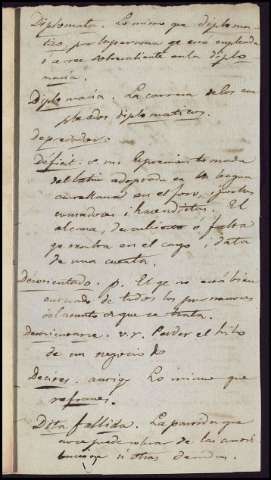 Diplomata. Lo mismo que diploma-
tico, por la persona qe está empleada
ó a ser sobresaliente en la diplo
macia.
Diplomacia. La carrera de los em
pleados diplomaticos.
depredador.
Déficit. s. m. Espresion tomada
del latin adoptada en la lengua
castellana en el foro, i juntas
i hacendistas. El
alcance, descubierto ó falta
qe resulta en el cargo i data
de una cuenta.
Desorientado. p. El qe no está bien
enterado de todos los pormenores
del asunto de que se trata.
Desorientarse. v. r. Perder el hilo
de un negocio
Decires. antig. Lo mismo que
refranes.
Dita fallida. La partida que
no se puede cobrar de las
ú otras deudas.